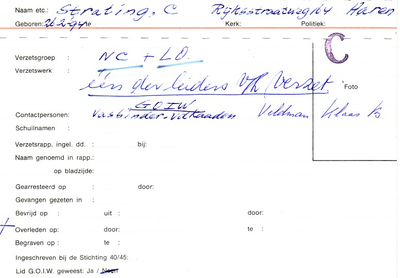 Naam etc.: Strating, C Rijksstraatweg 174 Haren
Geboren: 21-2-94 te Kerk: Politiek:
C
Verzetsgroep : NC + LO
Verzetswerk : één der leiders v/h verzet.
Foto
G.O.I.W
Contactpersonen: Vasbinder-Volkaaden Veldman Klaas
Schuilnaam :
Verzetsrapp. ingel. dd. : bij:
Naam genoemd in rapp.:
op bladzijde:
Gearresteerd op : door:
Gevangen gezeten in :
Bevrijd op : uit : door:
+ Overleden op: door: te :
Begraven op : te :
Ingeschreven bij de Stichting 40/45:
Lid G.O.I.W. geweest: Ja / Neen